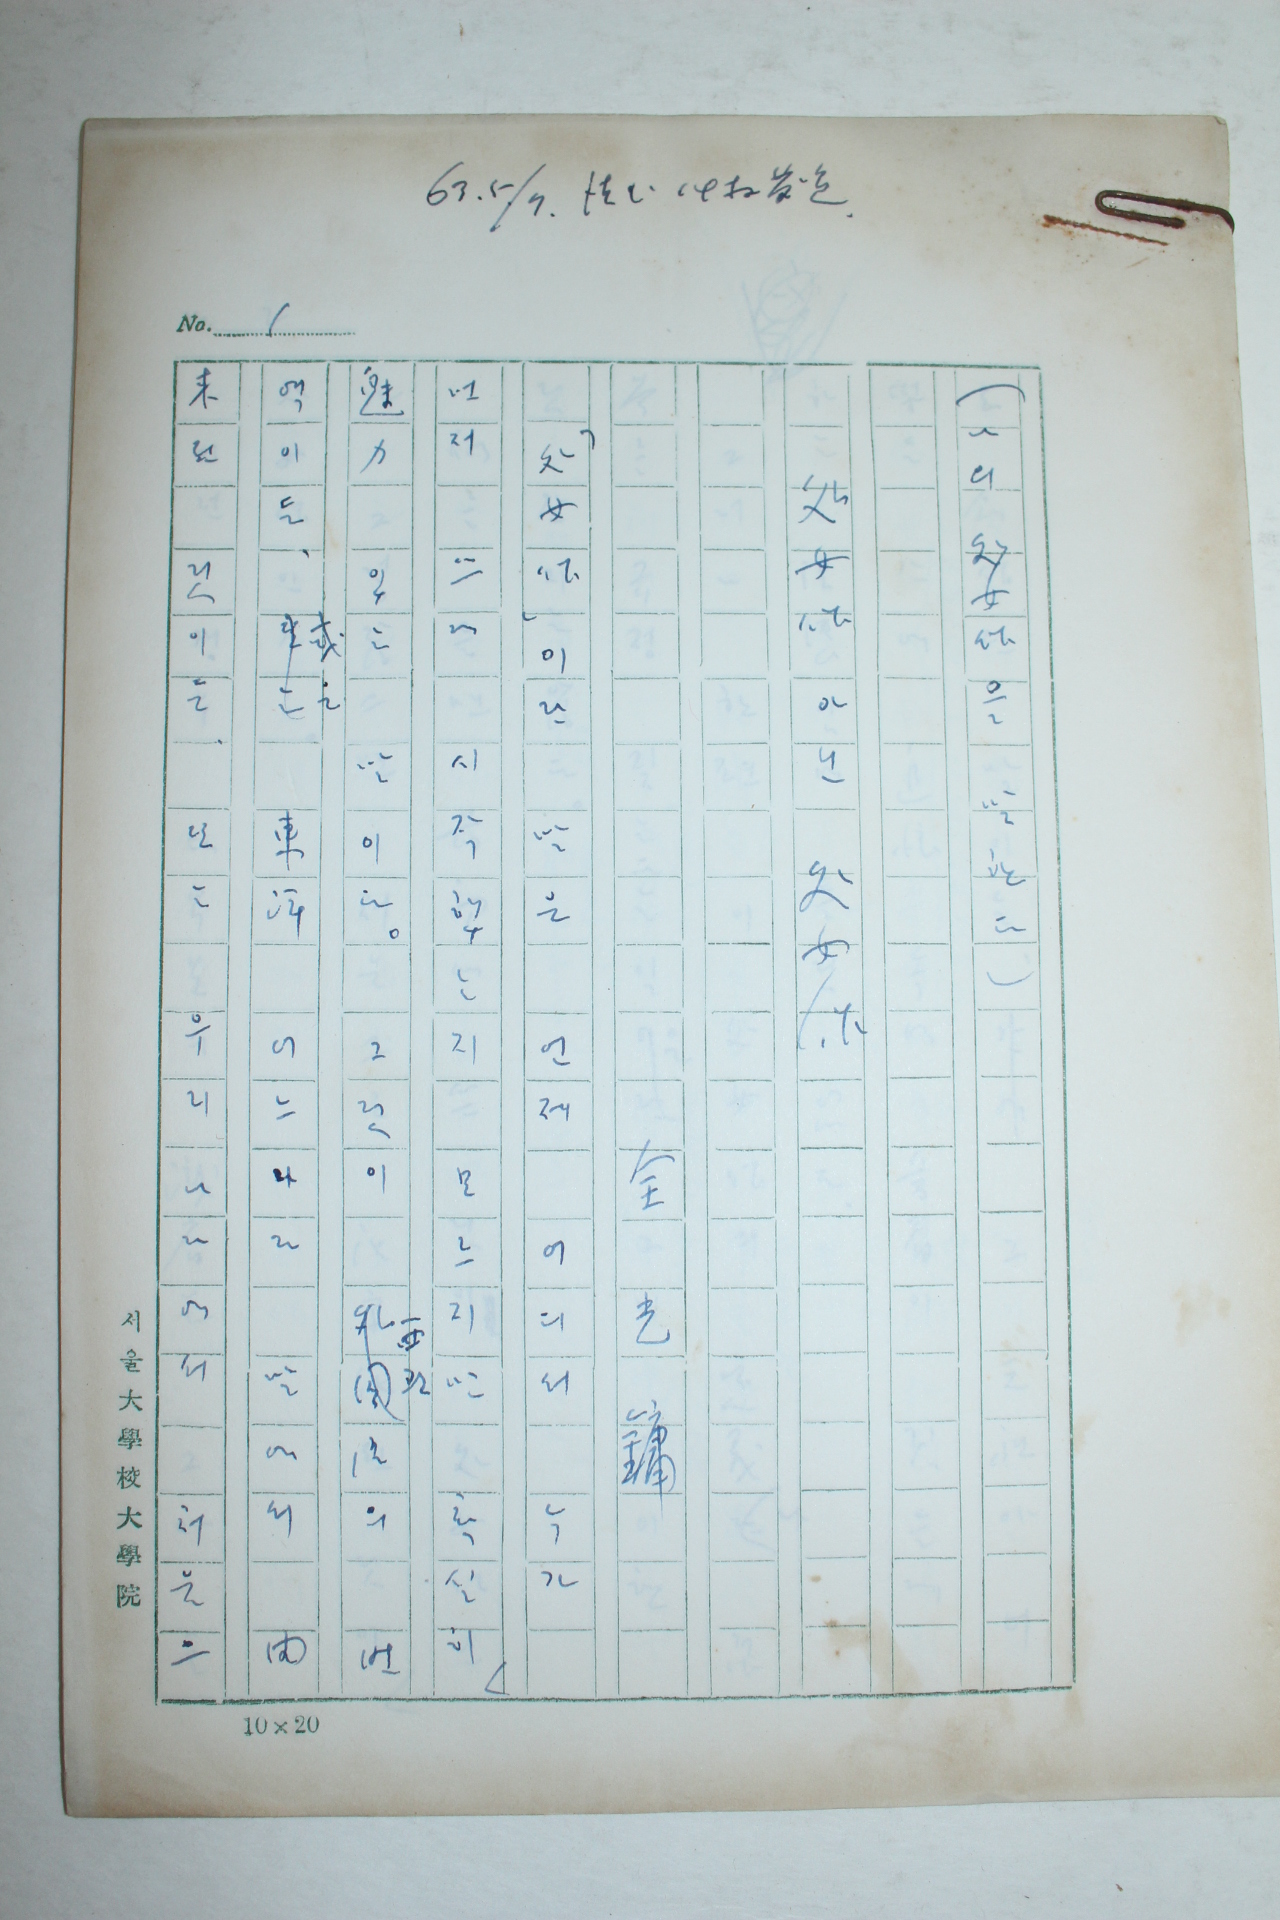 No. 1
(나의 処女作을 말한다)
処女作 아닌 処女作
金 光 鏞
「処女作」이란 말은 언제 어디서 누가
먼저 쓰기 시작했는지 모르지만 확실히
魅力 있는 말이다. 그것이 西歐
의 번
역이든, 或은 東洋 어느나라 말에서 由
来된 것이든, 또는 우리나라에서 처음으
서울大學校大學院
10×20